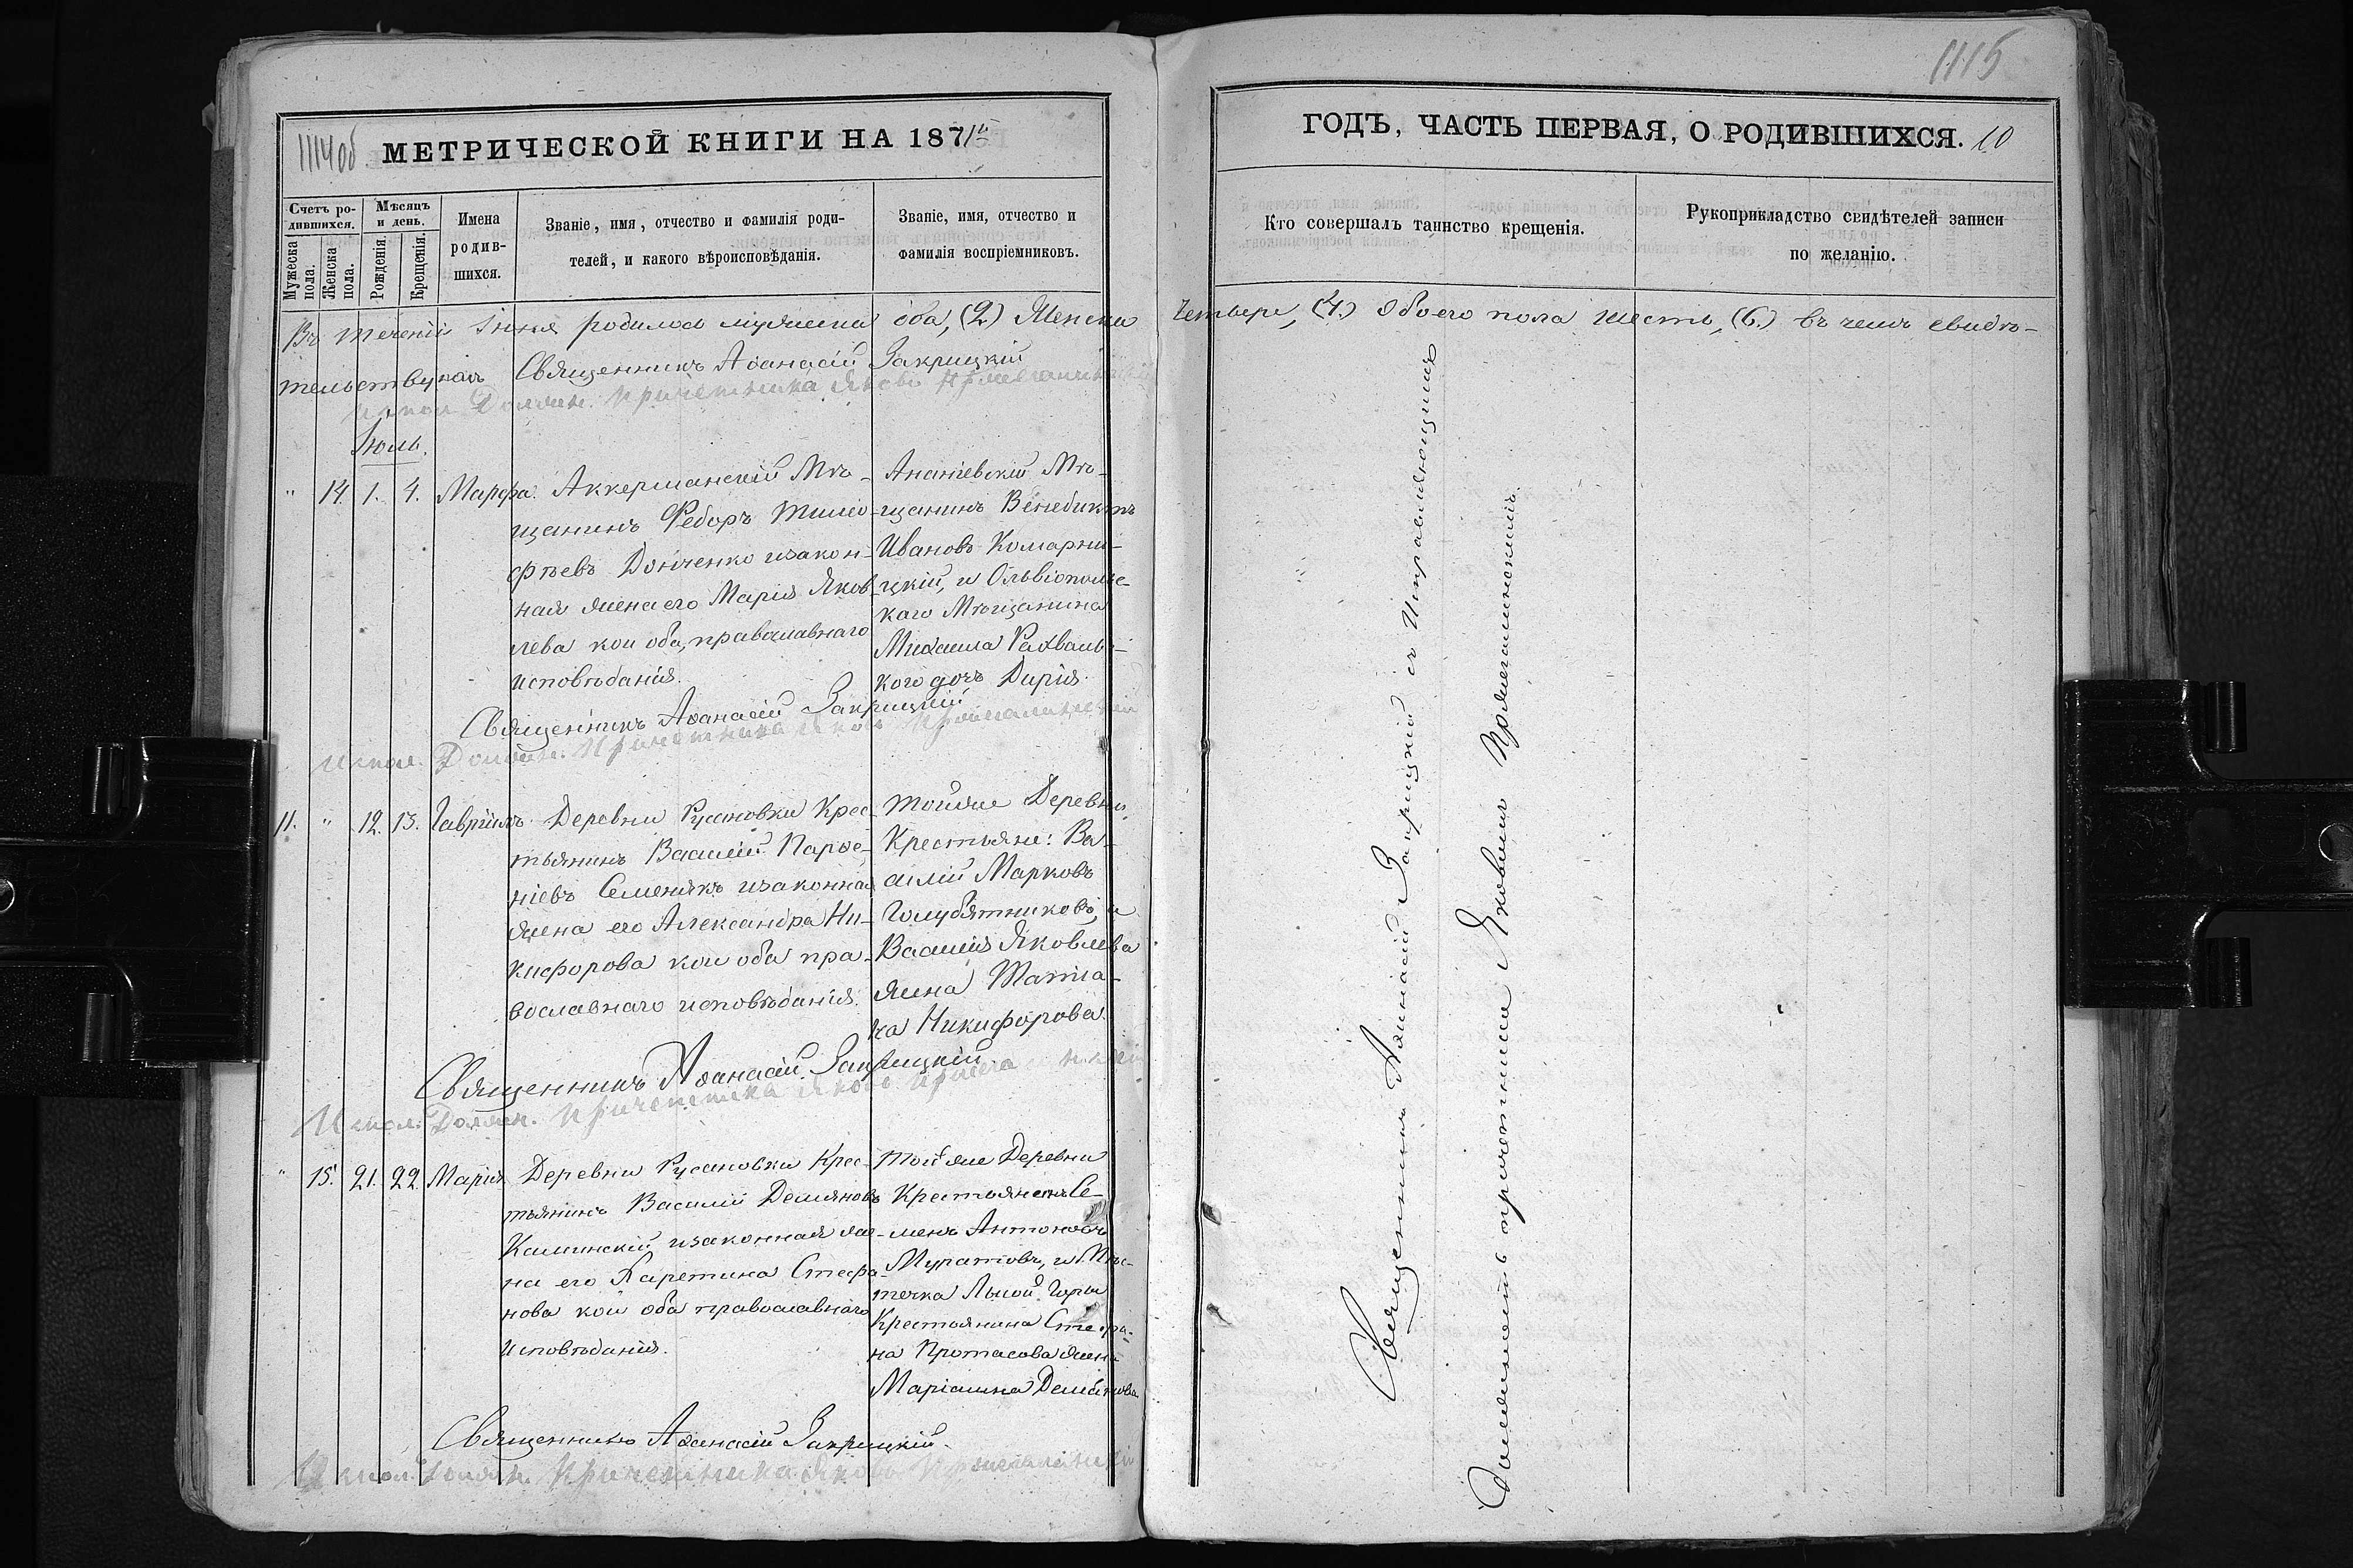 1114об
МЕТРИЧЕСКОЙ КНИГИ НА 1871й
Счетъ ро-
дившихся.
Мужеска
пола.
Женска
пола.
Мѣсяцъ
и день.
Рожденія.
Крещенія.
Имена
родив-
шихся.
Званіе, имя, отчество и фамилія роди-
телей, и какого вѣроисповѣданія.
Званіе, имя, отчество и
фамилія воспріемниковъ.
Въ теченіи Іюня родилось мужеска оба, (2.) Женска
тельствуемъ Священникъ Аѳанасій Закрицкій
Испол. Должн. Причетника Яковъ
Іюль.
" 14. 1. 4. Марфа. Аккерманскій Мѣ-
щанинъ Ѳедоръ Тимо-
фѣевъ Донченко изакон-
ная жена его Марія Яков-
лева кои оба, православнаго
исповѣданія.
Ананіевскій Мѣ-
щанинъ Венедиктъ
Ивановъ Комарни-
цкій, и Ольвіопольс-
каго Мѣщанина
Михаила Рахваль-
кого дочь Дарія.
Священникъ Аѳанасій Закрицкій
Испол. Должн. Причетника Яковъ
11. " 12. 13. Гавріилъ Деревни Русановки Крес-
тьянинъ Василій Парѳе-
ніевъ Семенякъ изаконная
жена его Александра Ни-
кифорова кои оба пра-
вославнаго исповѣданія.
Тойже Деревни,
Крестьяне: Ва-
силій Марковъ
Голубятниковъ, и
Василія Яковлева
жена Татіа-
на Никифорова.
Священникъ Аѳанасій Закрицкій
Испол. Должн. Причетника Яковъ
" 15. 21. 22. Марія Деревни Русановки Крес-
тьянинъ Василій Демяновъ
Калинскій изаконная же-
на его Паретина Стефа-
нова кои оба православнаго
исповѣданія.
Той же Деревни
Крестьянинъ Се-
менъ Антоновъ
Муратовъ, и Мѣс-
течка Лысой Горы
Крестьянина Стефа-
на Протасова жена
Маріанна Демянова
Священникъ Аѳанасій Закрицкій.
Испол. Должн. Причетника Яковъ
1115
ГОДЪ, ЧАСТЬ ПЕРВАЯ, О РОДИВШИХСЯ. 10
Кто совершалъ таинство крещенія.
Рукоприкладство свидѣтелей записи
по желанію.
Четыре, (4.) Обоего пола шесть, (6.) въ чемъ свидѣ-
Священникъ Аѳанасій Закрицкій съ Исправляющимъ
Должность причетника Яковымъ